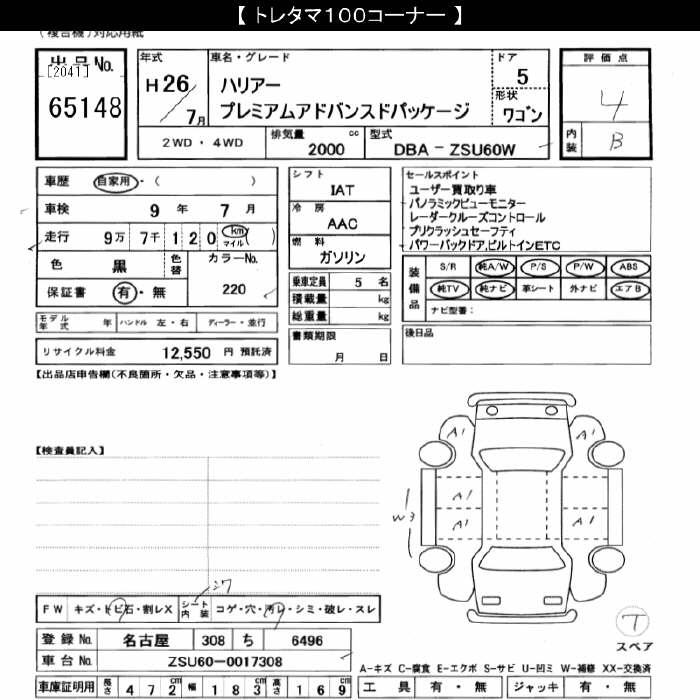 【 トレタマ100コーナー 】
(複合機)対応用紙
出品No.
[2041]
65148
年式
H 26
／ 7月
車名・グレード
ハリアー
プレミアムアドバンスドパッケージ
ドア
5
形状
ワゴン
2WD・4WD
排気量 cc
2000
型式
DBA － ZSU60W
評価点
4
内装
B
車歴 自家用・( )
車検 9 年 7 月
走行 9万 7千 1 2 0 km マイル ( )
色 黒 色替 カラーNo.
保証書 有・無 220
モデル年式 年 ハンドル 左・右 ディーラー・並行
リサイクル料金 12,550 円 預託済
シフト
IAT
冷房
AAC
燃料
ガソリン
乗車定員 5 名
積載量 kg
総重量 kg
書類期限
月 日
セールスポイント
ユーザー買取り車
パノラミックビューモニター
レーダークルーズコントロール
プリクラッシュセーフティ
パワーバックドア,ビルトインETC
装備品
S/R 純A/W P/S P/W ABS
純TV 純ナビ 革シート 外ナビ エアB
ナビ型番：
後日品
【出品店申告欄(不良箇所・欠品・注意事項等)】
【検査員記入】
A1 A1
A1 A1
A1
W3
シワ
FW キズ・トビ石・割レX シート内装 コゲ・穴・汚レ・シミ・破レ・スレ
登録No. 名古屋 308 ち 6496
車台No. ZSU60-0017308
車庫証明用 長さ 4 7 2 cm 幅 1 8 3 cm 高さ 1 6 9 cm
T
スペア
A-キズ C-腐食 E-エクボ S-サビ U-凹ミ W-補修 XX-交換済
工具 有・無 ジャッキ 有・無